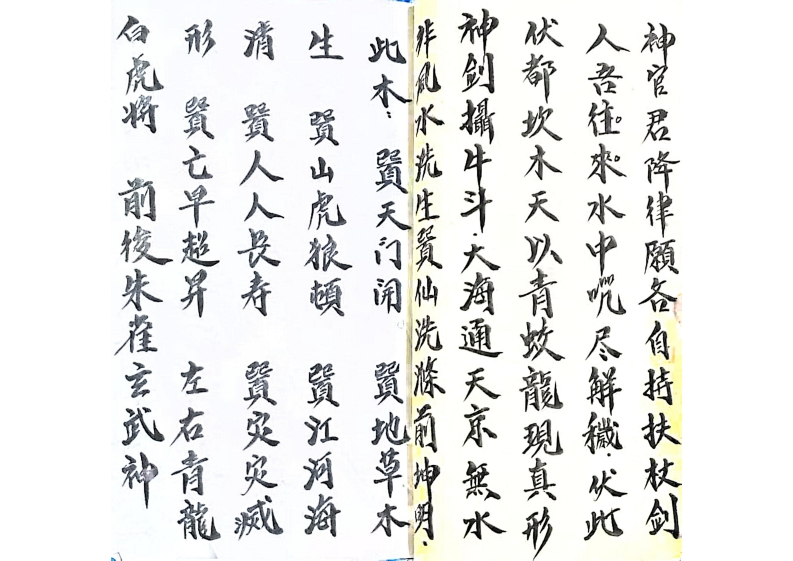 神官君降律願各自持扶杖剑
人吾往來水中咒尽解穢伏此
伏都坎水天以青蛟龍現真形
神剑攝牛斗大海通天京無水
非凡水洗生巽仙洗滌前坤明
此木巽天门開 巽地草木
生 巽山虎狼頓 巽江河海
清 巽人人長寿 巽灾灾滅
形 巽亡早超昇 左右青龍
白虎将 前後朱雀玄武神